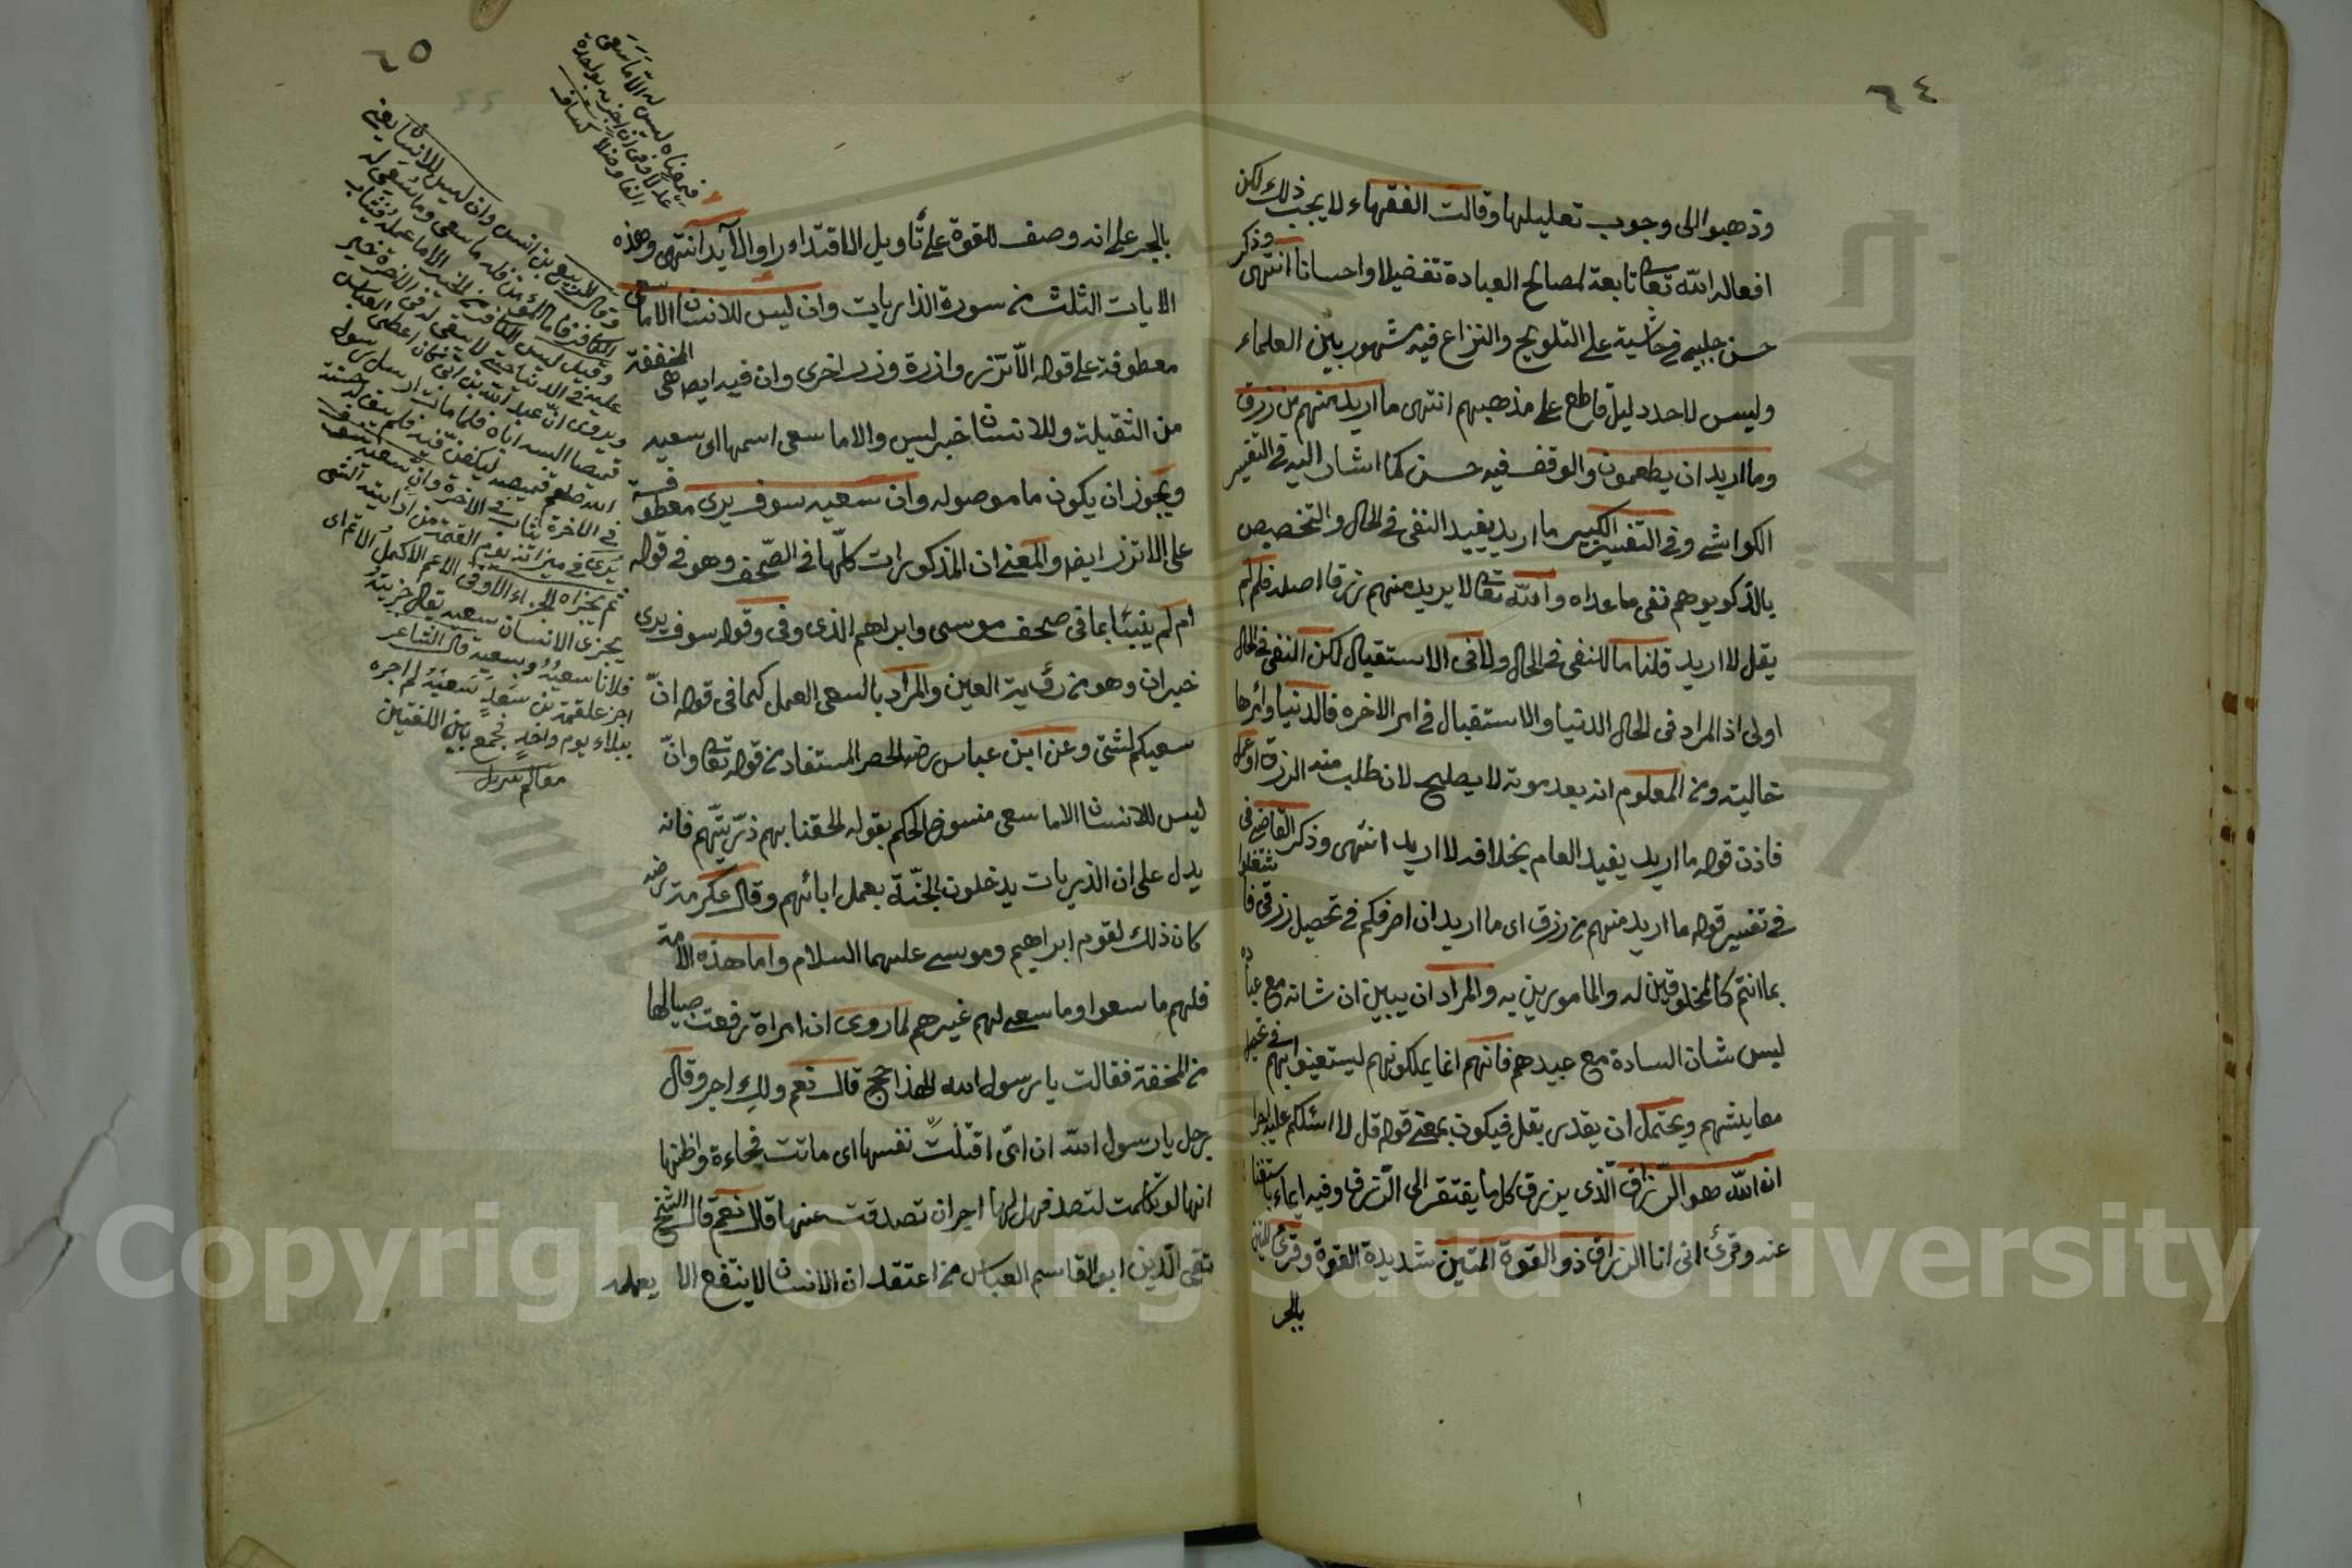 ٦٤
وذهبوا الى وجوب تعليلها وقالت الفقهاء لا يجب ذلك لكن
افعاله الله تعا تابعة لمصالح العبادة تفضيلا واحسانا انتهى وذكر
حسن جلبي في حاشية على التلويح والنزاع فيه مشهور بين العلماء
وليس لاحد دليل قاطع على مذهبهم انتهى ما اريد منهم من رزق
وما اريد ان يطعمون والوقف فيه حسن كما اشار اليه في التفسير
الكواشي وفي التفسير الكبير ما اريد يفيد النفى في الحال والتخصيص
بالذكر يوهم نفى ما عداه والله تعالى لا يريد منهم رزقا اصلا فلم لم
يقل لا اريد قلنا ما للنفى في الحال ولا في الاستقبال لكن النفى في الحال
اولى اذ المراد في الحال الدنيا والاستقبال في امر الاخرة فالدنيا وامرها
حالية ومن المعلوم انه بعد موته لا يصلح لان طلب منه الرزق او عمل
فاذن قوله ما اريد يفيد العام بخلاف لا اريد انتهى وذكر القاضي في
في تفسير قوله ما اريد منهم من رزق اى ما اريد ان اصرفكم في تحصيل رزقي فاشتغلوا
بما انتم كالمخلوقين له والمامورين به والمراد ان يبين ان شانه مع عباده
ليس شان السادة مع عبيدهم فانهم انما يملكونهم ليستعينوا بهم في تحصيل
معايشهم ويحتمل ان يقدر بقل فيكون بمعنى قوله قل لا اسئلكم عليه اجرا
ان الله هو الرزاق الذى يرزق كل ما يفتقر الى الرزق وفيه ايماء باستغنائه
عنه وقرئ انى انا الرزاق ذو القوة المتين شديدة القوة وقرئ المتين
بالجر
٦٥
بالجر على انه وصف للقوة على تأويل الاقتداء راو الايد انتهى وهذه
الايات الثلث من سورة الذاريات وان ليس للانسان الا ما سعى
معطوفة على قوله الا تزر وازرة وزر اخرى وان فيه ايضا هى المخففة
من الثقيلة وللانسان خبر ليس والا ما سعى اسمها اى سعيه
ويجوز ان يكون ما موصوله وان سعيه سوف يرى معطوفة
على الا تزر ايضا والمعنى ان المذكورات كلها في الصحف وهو في قوله
ام لم ينبئا بما في صحف موسى وابراهم الذى وفى وقوله سوف يرى
خبر ان وهو من رؤية العين والمراد بالسعى العمل كما في قوله ان
سعيكم لشتى وعن ابن عباس رضه الحصر المستفاد من قوله تعا وان
ليس للانسان الا ما سعى منسوخ الحكم بقوله الحقنا بهم ذريتهم فانه
يدل على ان الذريات يدخلون الجنة بعمل ابائهم وقال عكرمة رضه
كان ذلك لقوم ابراهيم وموسى عليهما السلام واما هذه الامة
فلهم ما سعوا وما سعى لهم غيرهم لما روى ان امراة رفعت صبيا لها
من المحفة فقالت يا رسول الله الهذا حج قال نعم ولك اجر وقال
رجل يا رسول الله ان امى افتلتت نفسها اى ماتت فجاءة واظنها
انها لو تكلمت لتصدق فهل لها اجر ان تصدقت عنها قال نعم قال الشيخ
تقى الدين ابو القاسم العباس من اعتقد ان الانسان لا ينتفع الا بعمله
وقال الربيع بن انس وان ليس للانسان يعنى
الكافر فاما المؤمن فله ما سعى وما سعى له
وقيل ليس للكافر من الخير الا ما عمله فيثاب
عليه في الدنيا حتى لا يبقى له في الاخرة خير
ويروى ان عبد الله بن ابى كان اعطى العباس
قميصا البسه اياه فلما مات ارسل رسول
الله صلعم قميصه ليكفن فيه فلم يبق له حسنة
في الاخرة يثاب في الاخرة وان سعيه سوف
يرى في ميزانه يوم القيمة من اراَيته الشئ
ثم يجزاه الجزاء الاوفى الاعم الاكمل الاتم اى
يجزى الانسان سعيه يقال جزيت
فلانا سعيه وبسعيه قال الشاعر
اجز علقمة بن سعد سعيه لم اجزه
ببلاء يوم واحد فجمع بين اللغتين
معالم تنزيل